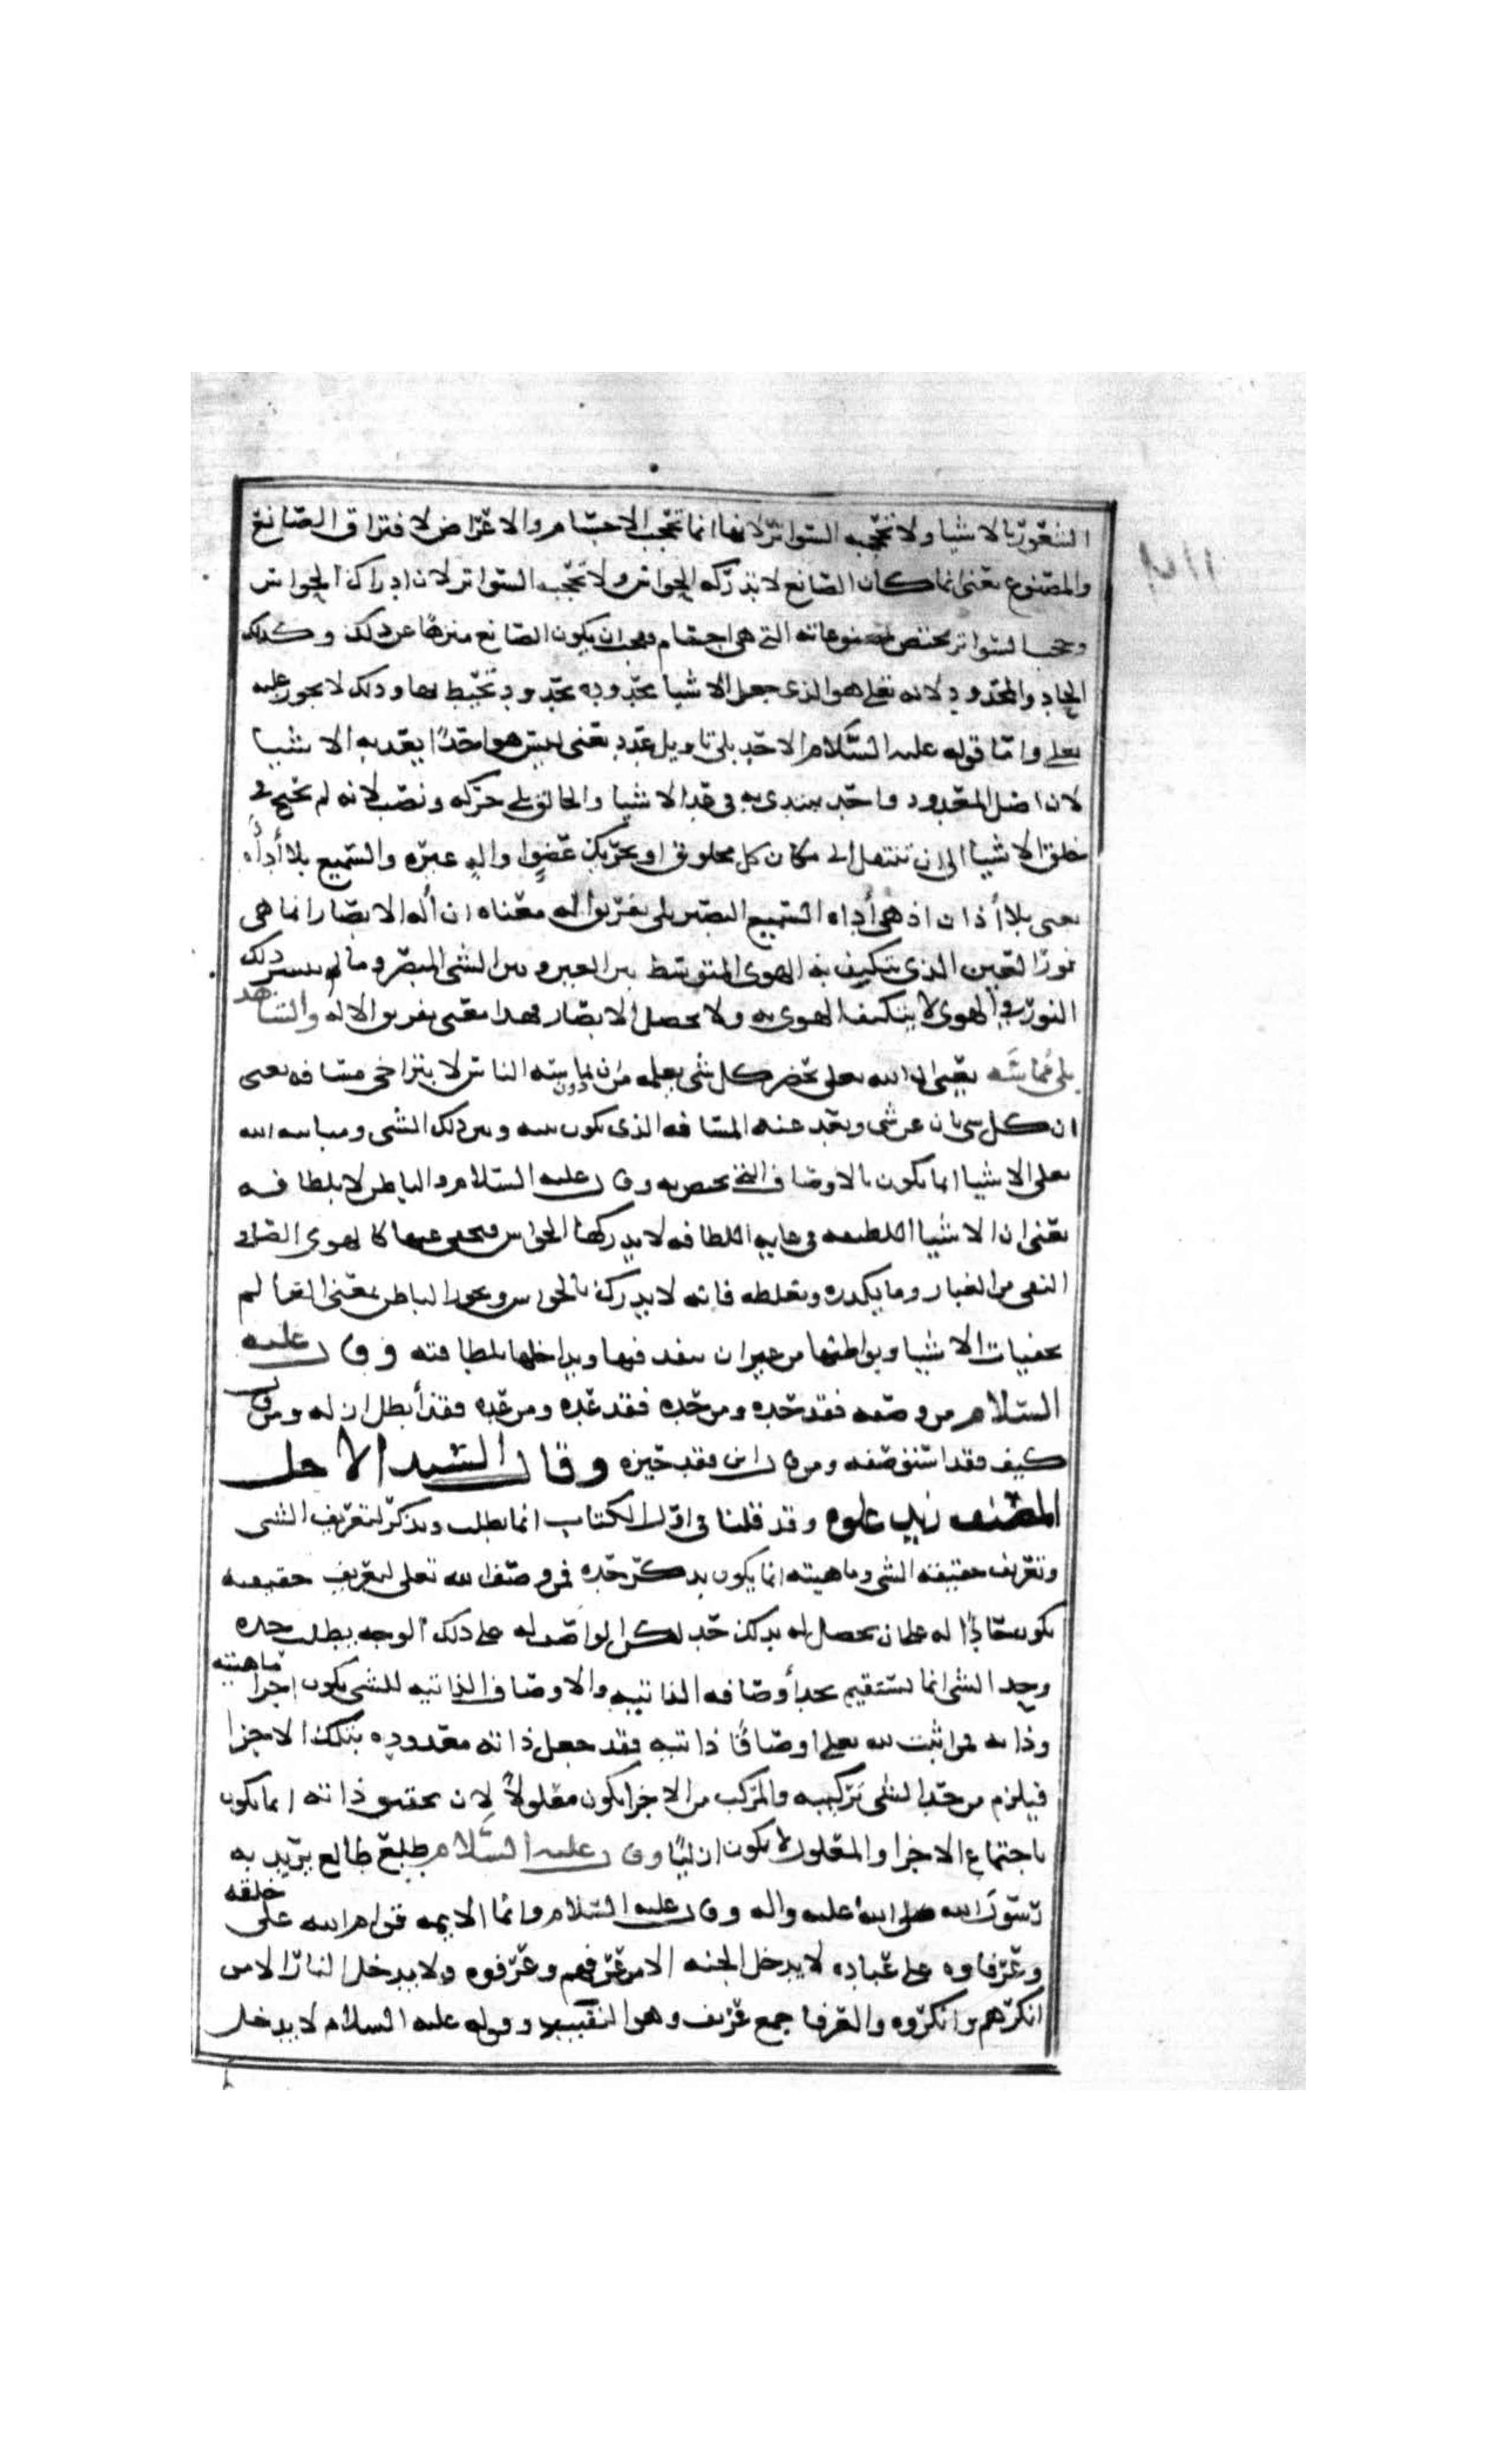 الشعور بالاشيا ولا تحجبه السواتر لانها انما تحجب الاجسام والاعراض لافتراق الصانع
والمصنوع يعنى انما كان الصانع لا تدركه الحواس ولا تحجبه السواتر لان ادراك الحواس
وحجب السواتر يختص بمصنوعاته التى هى اجسام فيجب ان يكون الصانع منزها عن ذلك وكذلك
الحاد والمحدود لانه تعلى هو الذى جعل الاشيا محدوده بحدود تحيط بها وذلك لا يجوز عليه
تعلى واما قوله عليه السلام الاحد بلا تاويل عدد يعنى ليس هو احدا يعد به الاشيا
لان اصل المعدود واحد يبتدى به فى عد الاشيا والخالق بلا حركه ونصب لانه لم يحتج فى
خلق الاشيا الى ان ينتقل الى مكان كل مخلوق او تحريك عضو واله غيره والسميع بلا أداه
يعنى بلا أذان اذ هى أداه السميع البصير بلا تفريق اله معناه ان أله الابصار انما هى
نور العين الذى يتكيف به الهوى المتوسط بين العين وبين الشى المبصر وما لم ينتشر ذلك
النور فى الهوى لا يتكيف الهوى به ولا يحصل الابصار فهذا معنى تفريق الاله والشاهد
بلا مماسه يعنى ان الله تعلى يحضر كل شى بعلمه من دون مماسته الباين لا بتراخى مسافه يعنى
ان كل شى بان عن شى وبعد عنه المسافه الذى تكون بينه وبين ذلك الشى ومباينه الله
تعلى الاشيا انما تكون بالاوصاف التى تختص به وقال عليه السلام والباطن لا بلطافه
يعنى ان الاشيا اللطيفه فى غايه اللطافه لا تدركها الحواس وتخفى عنها كالهوى الصافى
النقى من الغبار وما يكدره ويغلظه فانه لا يدرك بالحواس ويجوز الباطن بمعنى العالم
بخفيات الاشيا وبواطنها من غير ان ينفد فيها ويداخلها بلطافته وقال عليه
السلام من وصفه فقد حده ومن حده فقد عده ومن عده فقد أبطل ازله ومن قال
كيف فقد استوصفه ومن قال اين فقد حيزه وقال السيد الاجل
المصنف زيد علوه وقد قلنا فى اول الكتاب انما يطلب ويذكر لتعريف الشى
وتعريف حقيقه الشى وماهيته انما يكون بذكر حده فمن وصف الله تعلى لتعريف حقيقته
يكون حادا له على ان يحصل له بذلك حد لكن الواصف له على ذلك الوجه يطلب حده
وحد الشى انما يستقيم بحد أوصافه الذاتيه والاوصاف الذاتيه للشى يكون اجزا ماهيته
وذاته فمن اثبت لله تعلى اوصافا ذاتيه فقد جعل ذاته معدوده بتلك الاجزا
فيلزم من حد الشى تركيبه والمركب من الاجزا يكون معلولا لان تحقيق ذاته انما يكون
باجتماع الاجزا والمعلول لا يكون ازليا وقال عليه السلام طلع طالع يريد به
رسول الله صلى الله عليه واله وقال عليه السلام وانما الايمه قوام الله على خلقه
وعرفاوه على عباده لا يدخل الجنه الا من عرفهم وعرفوه ولا يدخل النار الا من
انكرهم وانكروه والعرفا جمع عريف وهو النقيب وقوله عليه السلام لا يدخل